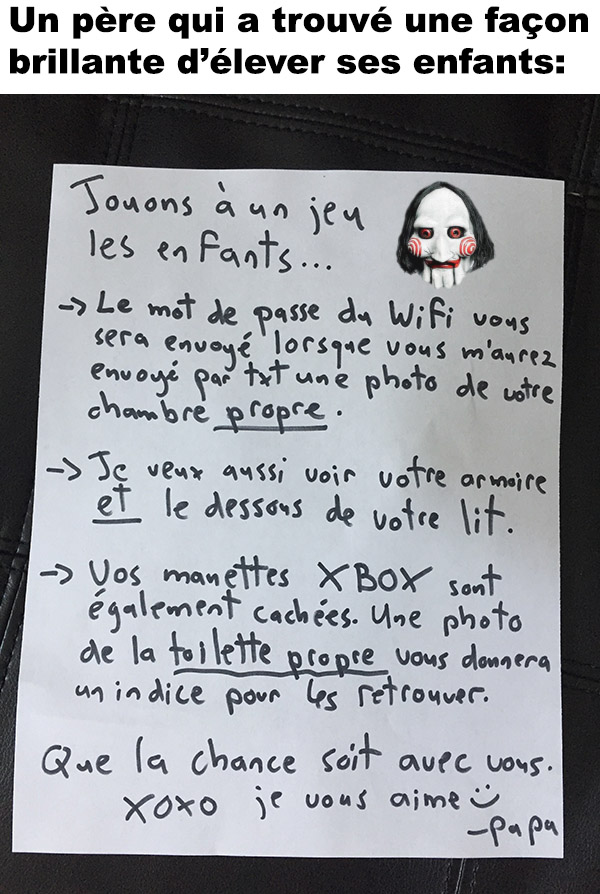 Un père qui a trouvé une façon
brillante d’élever ses enfants:
Jouons à un jeu
les enfants...
-> Le mot de passe du Wifi vous
sera envoyé lorsque vous m'aurez
envoyé par txt une photo de votre
chambre propre.
-> Je veux aussi voir votre armoire
et le dessous de votre lit.
-> Vos manettes XBOX sont
également cachées. Une photo
de la toilette propre vous donnera
un indice pour les retrouver.
Que la chance soit avec vous.
XOXO je vous aime :)
-papa